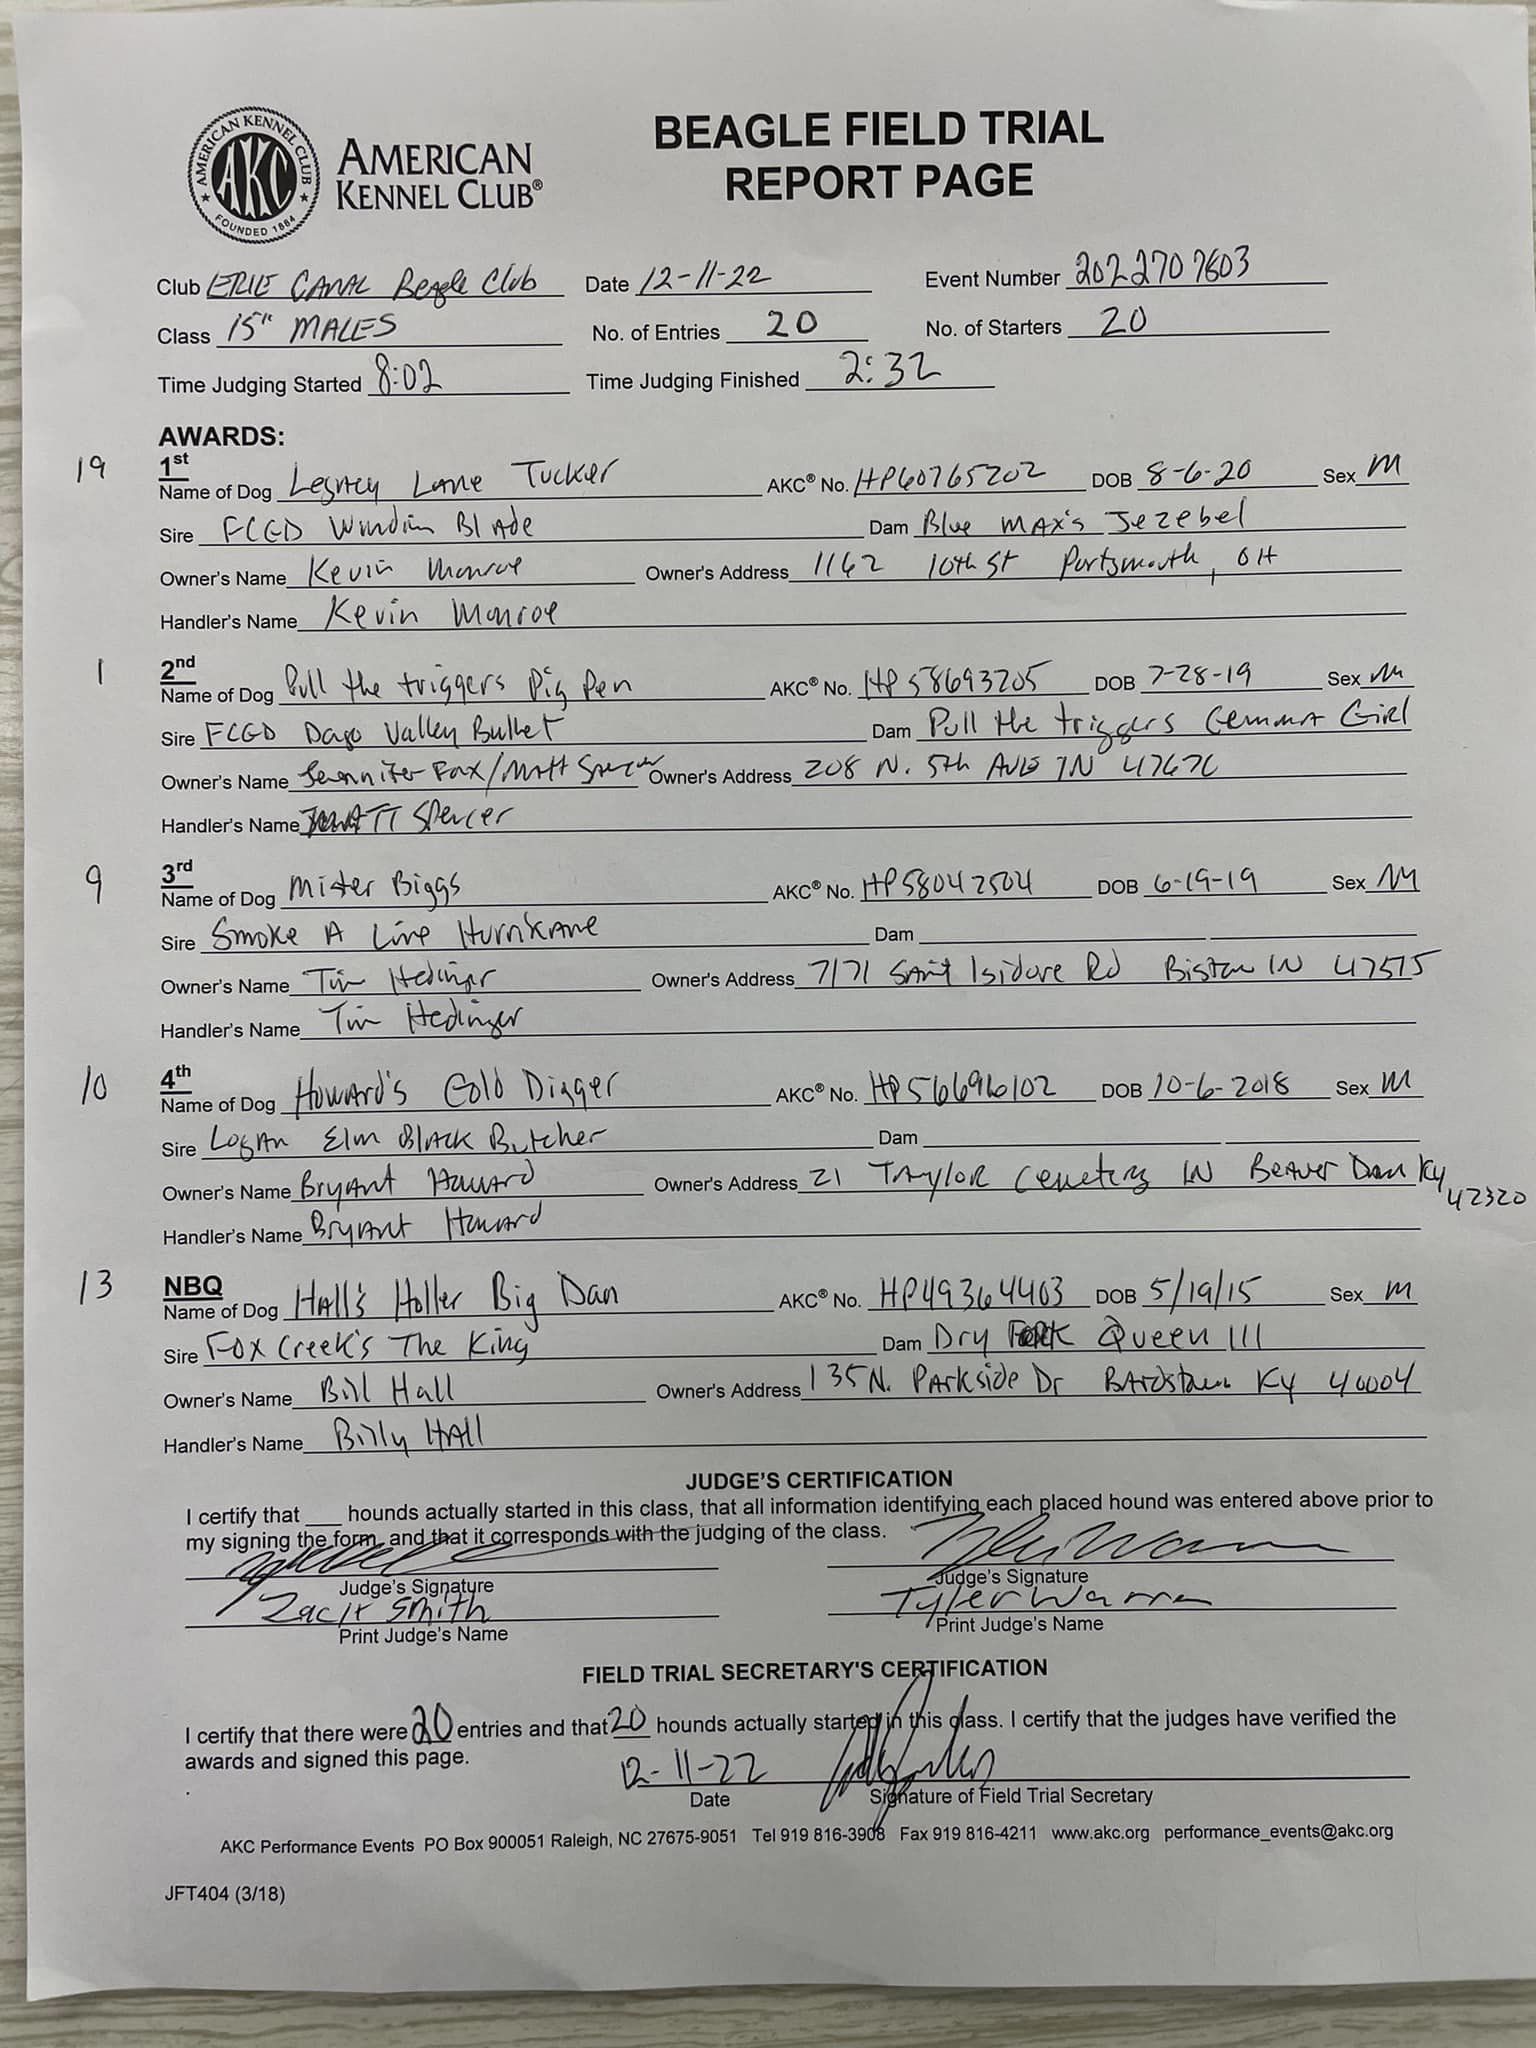 AMERICAN KENNEL CLUB
AKC
FOUNDED 1884
AMERICAN
KENNEL CLUB®
BEAGLE FIELD TRIAL
REPORT PAGE
Club ERIE CANAL Beagle Club Date 12-11-22 Event Number 2022707603
Class 15" MALES No. of Entries 20 No. of Starters 20
Time Judging Started 8:02 Time Judging Finished 2:32
AWARDS:
19 1st
Name of Dog Legacy Lane Tucker AKC® No. HP60765202 DOB 8-6-20 Sex M
Sire FCGD Windin Blade Dam Blue MAX's Jezebel
Owner's Name Kevin Monroe Owner's Address 1162 10th St Portsmouth, OH
Handler's Name Kevin Monroe
1 2nd
Name of Dog Pull the triggers Pig Pen AKC® No. HP58693205 DOB 7-28-19 Sex M
Sire FCGD Dago Valley Bullet Dam Pull the triggers Gemma Girl
Owner's Name Jennifer Fox/Matt Spencer Owner's Address 208 N. 5th AVE IN 47670
Handler's Name MATT Spencer
9 3rd
Name of Dog Mister Biggs AKC® No. HP58042504 DOB 6-19-19 Sex M
Sire Smoke A Line Hurrikane Dam
Owner's Name Tim Hedinger Owner's Address 7171 Saint Isidore Rd IN 47515
Handler's Name Tim Hedinger
10 4th
Name of Dog Howard's Gold Digger AKC® No. HP56696102 DOB 10-6-2018 Sex M
Sire Logan Elm Black Butcher Dam
Owner's Name Bryant Howard Owner's Address 21 Taylor Cemetery LN Beaver Dam Ky 42320
Handler's Name Bryant Howard
13 NBQ
Name of Dog HAll's Holler Big Dan AKC® No. HP49364403 DOB 5/19/15 Sex M
Sire Fox Creek's The King Dam Dry Fork Queen III
Owner's Name Bill Hall Owner's Address 135 N. Parkside Dr Bardstown Ky 40004
Handler's Name Billy HAll
JUDGE'S CERTIFICATION
I certify that ___ hounds actually started in this class, that all information identifying each placed hound was entered above prior to
my signing the form, and that it corresponds with the judging of the class.
Judge's Signature Judge's Signature
Zack Smith Tyler Warren
Print Judge's Name Print Judge's Name
FIELD TRIAL SECRETARY'S CERTIFICATION
I certify that there were 20 entries and that 20 hounds actually started in this class. I certify that the judges have verified the
awards and signed this page.
12-11-22
Date Signature of Field Trial Secretary
AKC Performance Events PO Box 900051 Raleigh, NC 27675-9051 Tel 919 816-3908 Fax 919 816-4211 www.akc.org performance_events@akc.org
JFT404 (3/18)